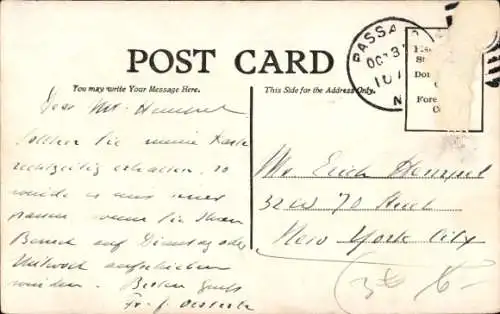 POST CARD
You may write Your Message Here.
This Side for the Address Only.
PASSA
OCT 3
10
N
St
Do
Fore
Dear Mr. Hempel
Sollten Sie meine Karte
rechtzeitig erhalten, so
würde es uns
passen wenn Sie Ihren
Besuch auf Dienstag oder
Mittwoch aufschieben
würden. Besten Gruß
Fr. J.
Mr Erich Hempel
32 W 70 Street
New York City